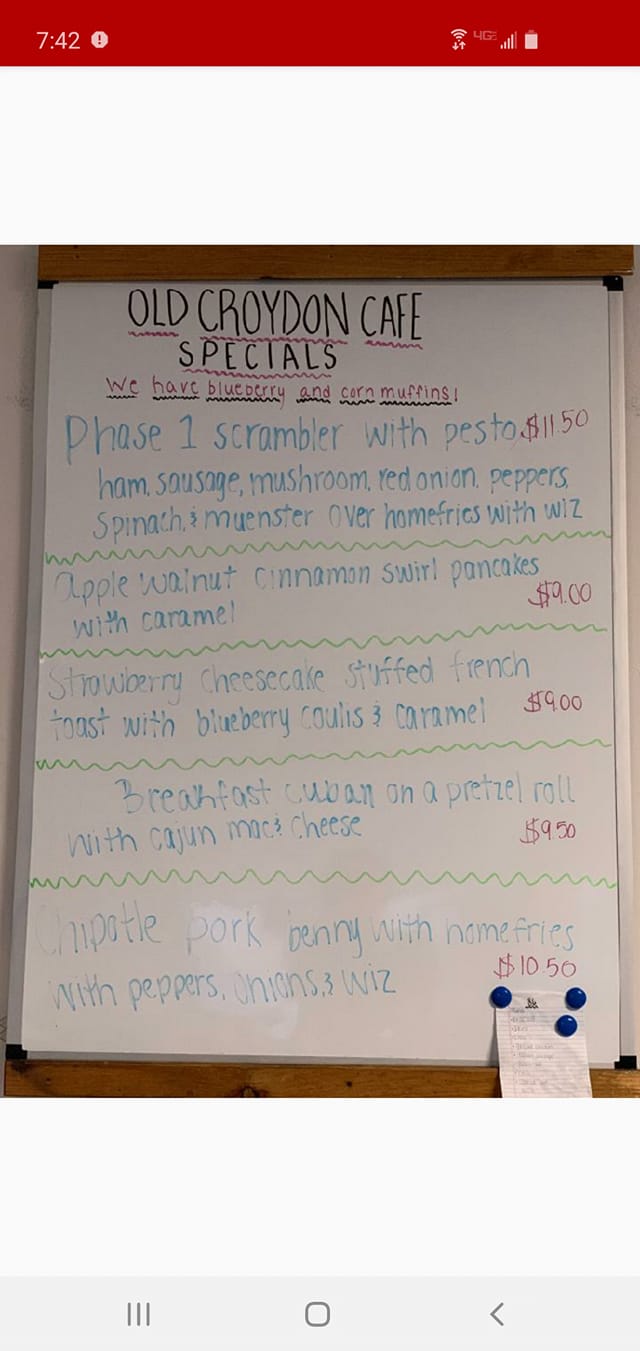 7:42
4GE
OLD CROYDON CAFE
SPECIALS
We have blueberry and corn muffins!
Phase 1 scrambler with pesto, $11.50
ham, sausage, mushroom, red onion, peppers,
spinach, & muenster over homefries with wiz
apple walnut cinnamon swirl pancakes
$9.00
with caramel
Strawberry cheesecake stuffed french
toast with blueberry coulis & caramel $9.00
Breakfast cuban on a pretzel roll
with cajun mac & cheese $9.50
Chipotle pork benny with homefries
$10.50
with peppers, onions, & wiz